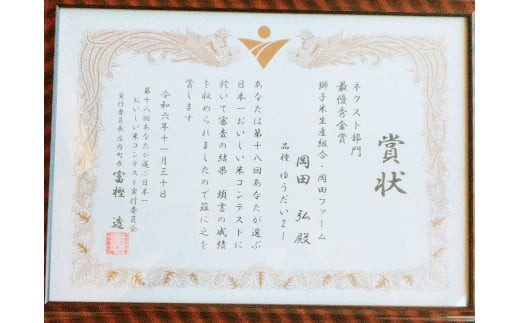 賞状
ネクスト部門
最優秀金賞
獅子米生産組合・岡田ファーム
岡田 弘 殿
品種 ゆうだい21
あなたは第十八回あなたが選ぶ
日本一おいしい米コンテストに
於いて審査の結果 頭書の成績
を収められましたので茲に之を
賞します
令和六年十一月三十日
第十八回あなたが選ぶ日本一
おいしい米コンテスト実行委員会
実行委員長庄内町長 富樫 透